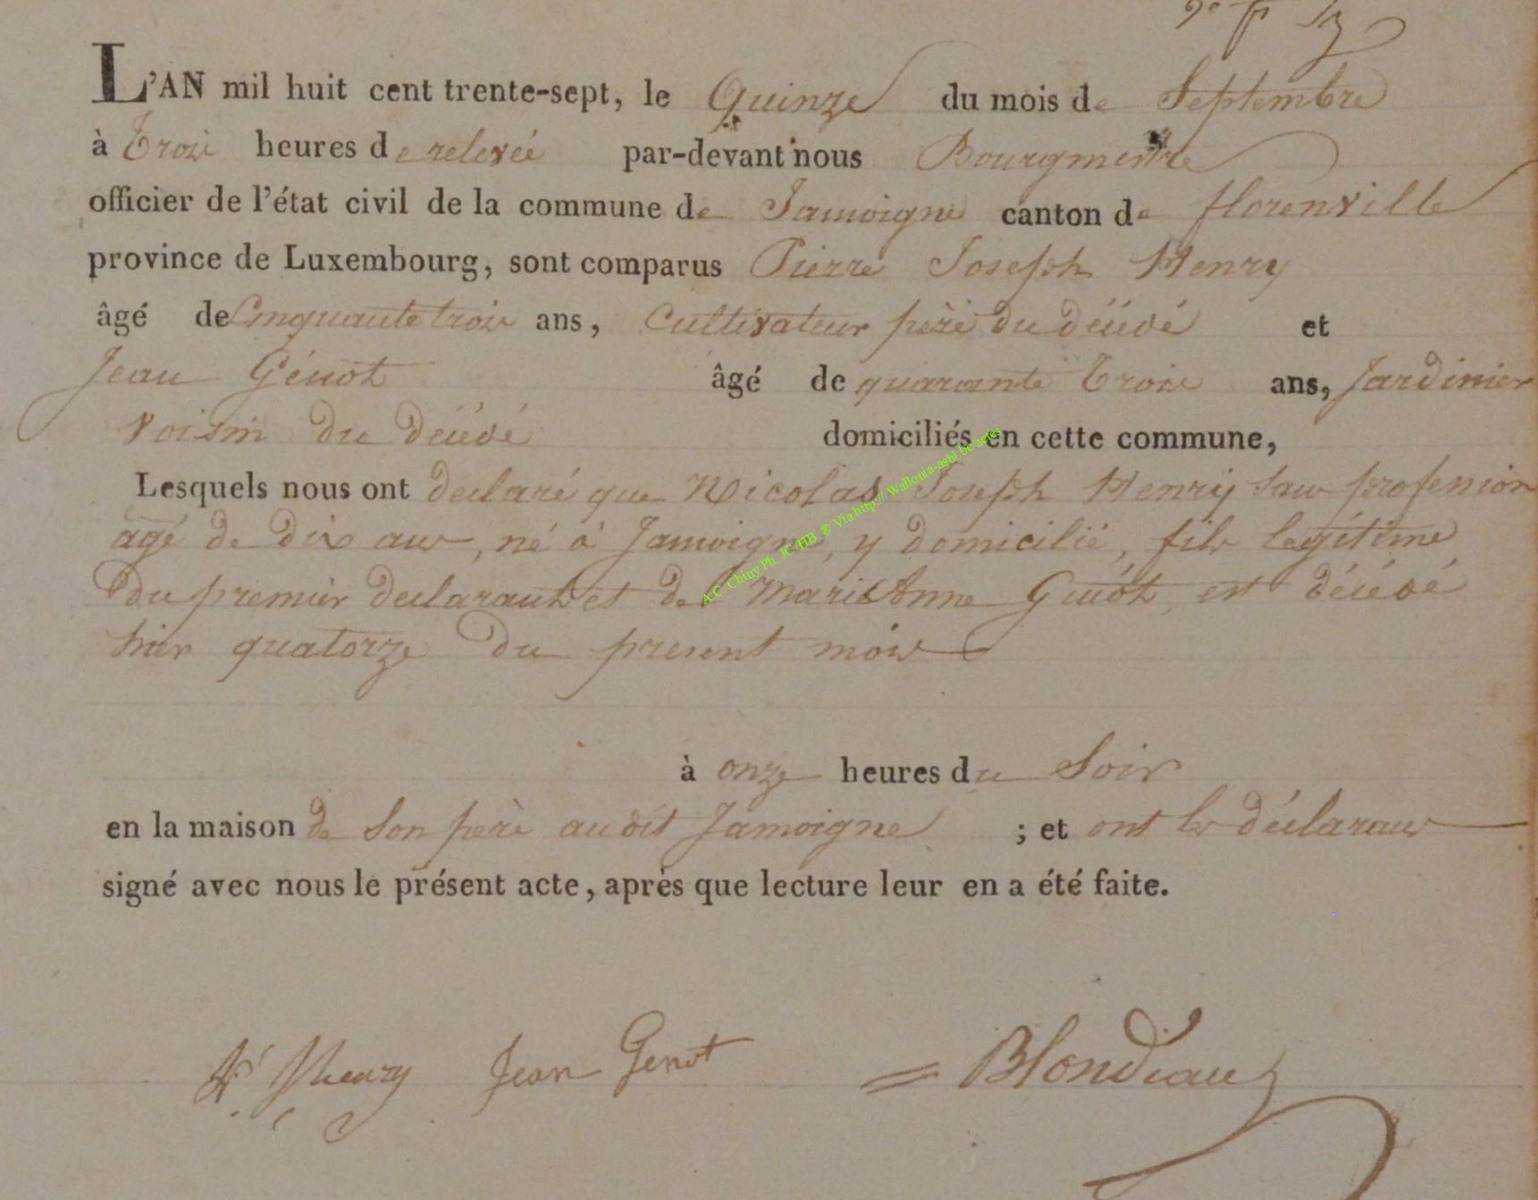 L'AN mil huit cent trente-sept, le Quinze du mois de Septembre
à Trois heures de relevée par-devant nous Bourgmestre
officier de l'état civil de la commune de Jamoigne canton de florenville
province de Luxembourg, sont comparus Pierre Joseph Henry
âgé de Cinquante trois ans, Cultivateur père du décédé et
Jean Génot âgé de quarante Trois ans, Jardinier
voisin du décédé domiciliés en cette commune,
Lesquels nous ont declaré que Nicolas Joseph Henry sans profession
agé de dix ans, né à Jamoigne, y domicilié, fils legitime
du premier declarant et de Marie Anne Génot, est décédé
hier quatorze du present mois
à onze heures du Soir
en la maison de Son père audit Jamoigne ; et ont les déclarans
signé avec nous le présent acte, après que lecture leur en a été faite.
Henry Jean Genot Blondiau
A.C. Chiny Ph. JC-HB © Via http://Wallonia-asbl.be actes